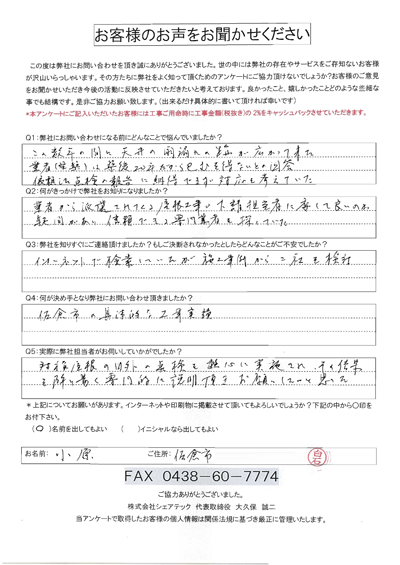 お客様のお声をお聞かせください
この度は弊社にお問い合わせを頂き誠にありがとうございました。世の中には弊社の存在やサービスをご存知ないお客様
が沢山いらっしゃいます。その方たちに弊社をよく知って頂くためのアンケートにご協力頂けないでしょうか？お客様のご意見
をお聞かせいただき今後の活動に反映させていただきたいと考えております。良かったこと、嬉しかったことどのような些細な
事でも結構です。是非ご協力お願い致します。（出来るだけ具体的に書いて頂ければ幸いです）
*本アンケートにご記入いただいたお客様には工事ご用命時に工事金額（税抜き）の2%をキャッシュバックさせていただきます。
Q1：弊社にお問い合わせになる前にどんなことで悩んでいましたか？
この数年の間に天井の雨漏れの が広がって来た
業者 は築後20年だから の回答
Q2：何がきっかけで弊社をお知りになりましたか？
業者から派遣されてくる屋根工事の 担当者に して良いのか
疑問があり信頼できる専門業者を探していた
Q3：弊社を知りすぐにご連絡頂けましたか？もしご決断されなかったとしたらどんなことがご不安でしたか？
インターネットで検索していたが施工事例から二社を検討
Q4：何が決め手となり弊社にお問い合わせ頂きましたか？
佐倉市の具体的な工事実績
Q5：実際に弊社担当者がお伺いしていかがでしたか？
屋根以外の点検も熱心に実施され、その結果
専門的に説明頂きお願いしたいと思った
＊上記についてお願いがあります。インターネットや印刷物に掲載させて頂いてもよろしいでしょうか？下記の中から〇印を
お付下さい。
（〇）名前を出してもよい （ ）イニシャルなら出してもよい
お名前： 小原 ご住所： 佐倉市 白石
FAX 0438-60-7774
ご協力ありがとうございました。
株式会社シェアテック 代表取締役 大久保 誠二
当アンケートで取得したお客様の個人情報は関係法規に基づき厳正に管理いたします。